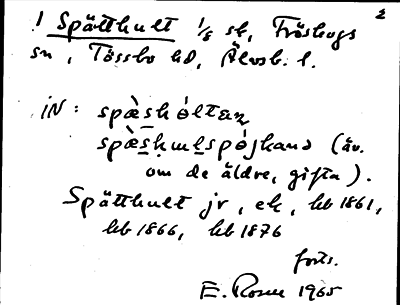 2
! Spätthult 1/8 sk, Fröskogs
sn, Tössbo hd, Älvsb. l.
IN: spæ̀skóltan
spæ̀skmlspójkanə (äv.
om de äldre, gifta).
Spätthult jr, ek, hb 1861,
hb 1866, hb 1876
forts.
E. Rosen 1965